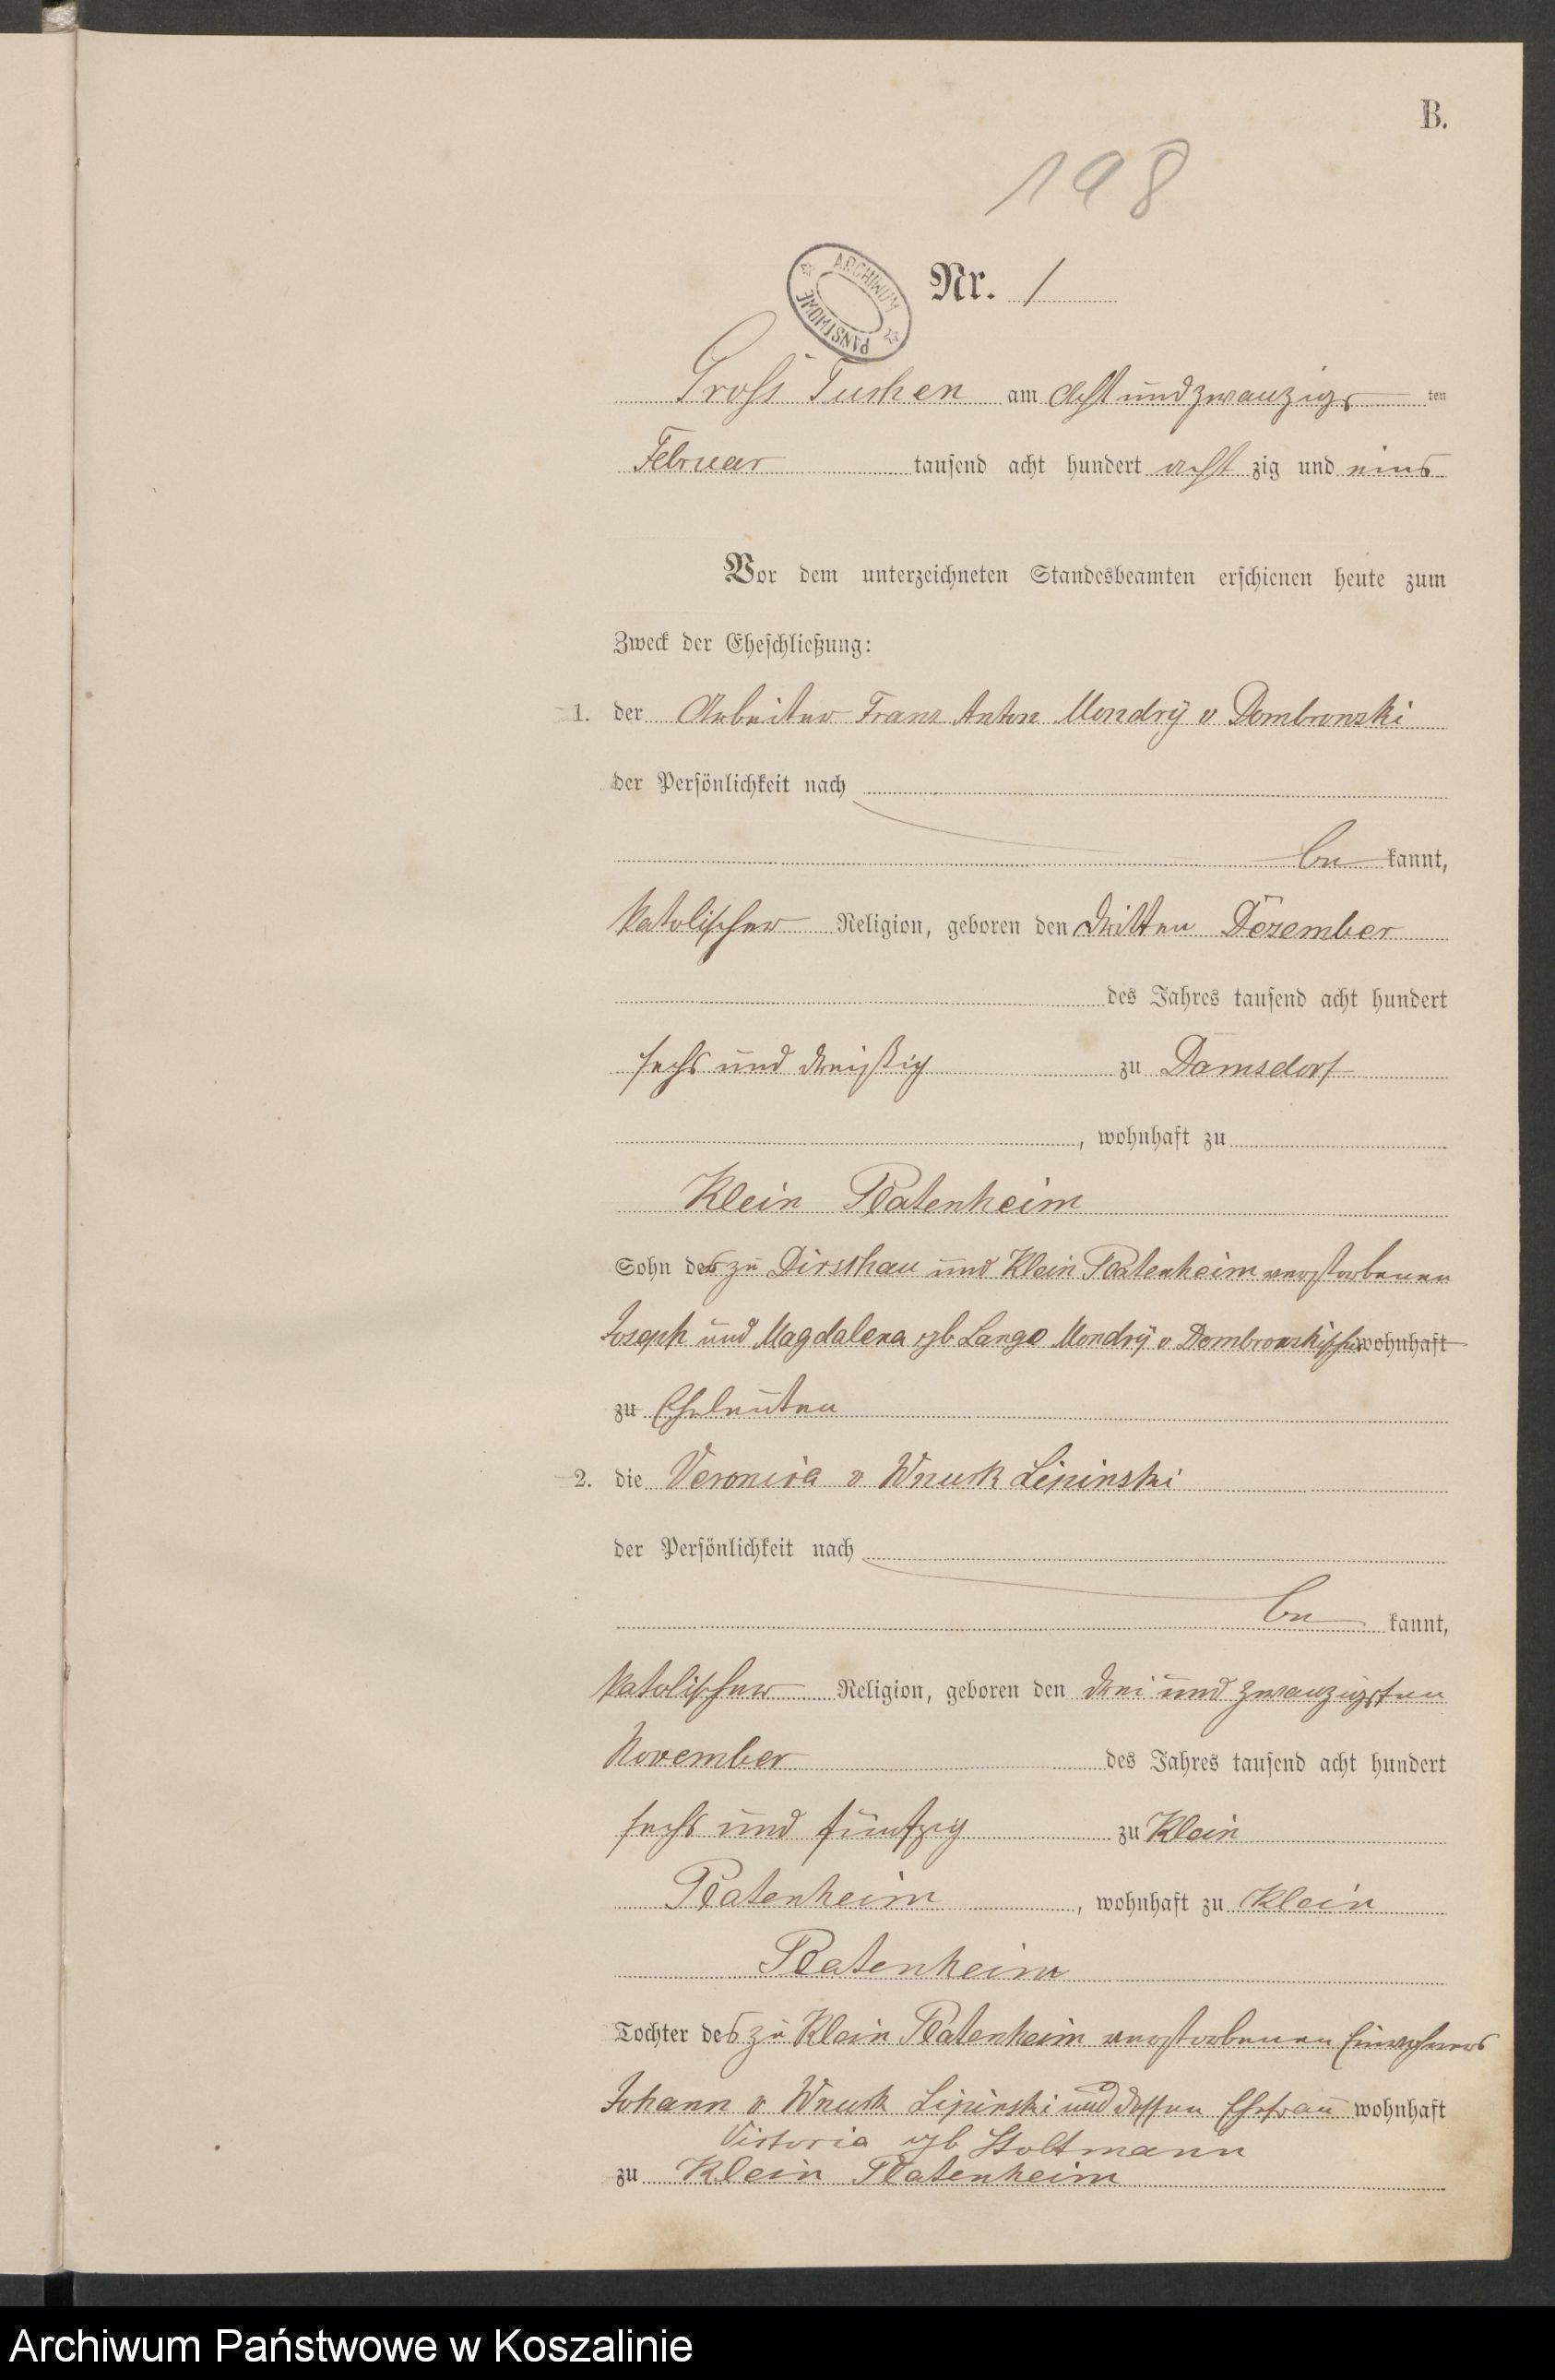 B.
198
ARCHIWUM PAŃSTWOWE
Nr. 1
Gross Tuchen am Acht und zwanzigs ten
Februar tausend acht hundert acht zig und eins
Vor dem unterzeichneten Standesbeamten erschienen heute zum
Zweck der Eheschließung:
1. der Arbeiter Franz Anton Mondrÿ v Dombrowski
der Persönlichkeit nach
be kannt,
katolischer Religion, geboren den dritten Dezember
des Jahres tausend acht hundert
sechs und dreißig zu Damsdorf
, wohnhaft zu
Klein Platenheim
Sohn des zu Dirschau und Klein Platenheim verstorbenen
Joseph und Magdalena geb Lange Mondrÿ v Dombrowskischen wohnhaft
zu Eheleuten
2. die Veronica v Wnuck Lipinski
der Persönlichkeit nach
be kannt,
katolischer Religion, geboren den drei und zwanzigsten
November des Jahres tausend acht hundert
sechs und fünfzig zu Klein
Platenheim , wohnhaft zu Klein
Platenheim
Tochter des zu Klein Platenheim verstorbenen Einwohners
Johann v Wnuck Lipinski und dessen Ehefrau wohnhaft
Victoria geb Stoltmann
zu Klein Platenheim
Archiwum Państwowe w Koszalinie